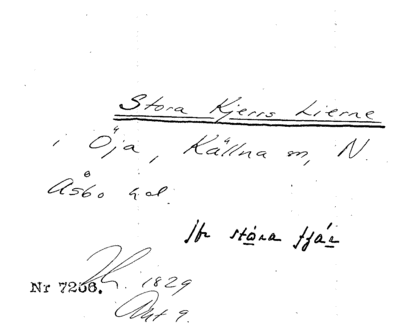 Stora Kjerrs Lierne
i Öja, Källna sn, N.
Åsbo hd.
Jfr stora fjär
Nr 7206. 1829
Akt 9.